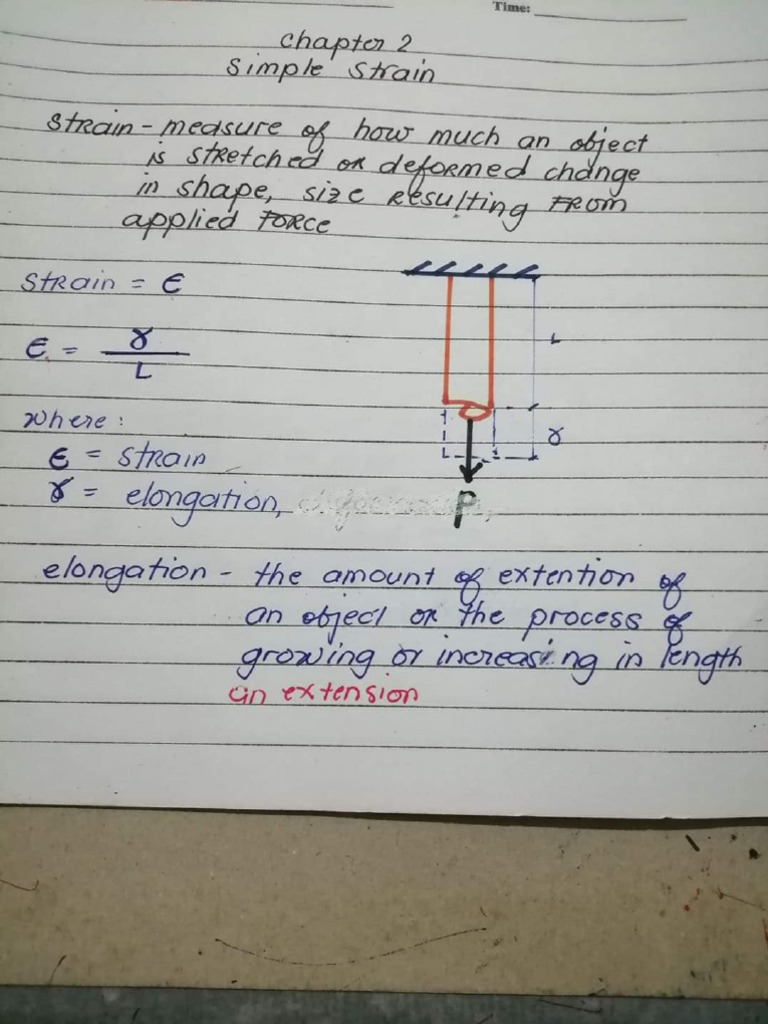 Time:
Chapter 2
Simple Strain
Strain - measure of how much an object
is stretched or deformed change
in shape, size resulting from
applied force
Strain = ϵ
ϵ = 𝛾 / L
L
where:
ϵ = strain
𝛾
𝛾 = elongation,
P
elongation - the amount of extention of
an object or the process of
growing or increasing in length
an extension